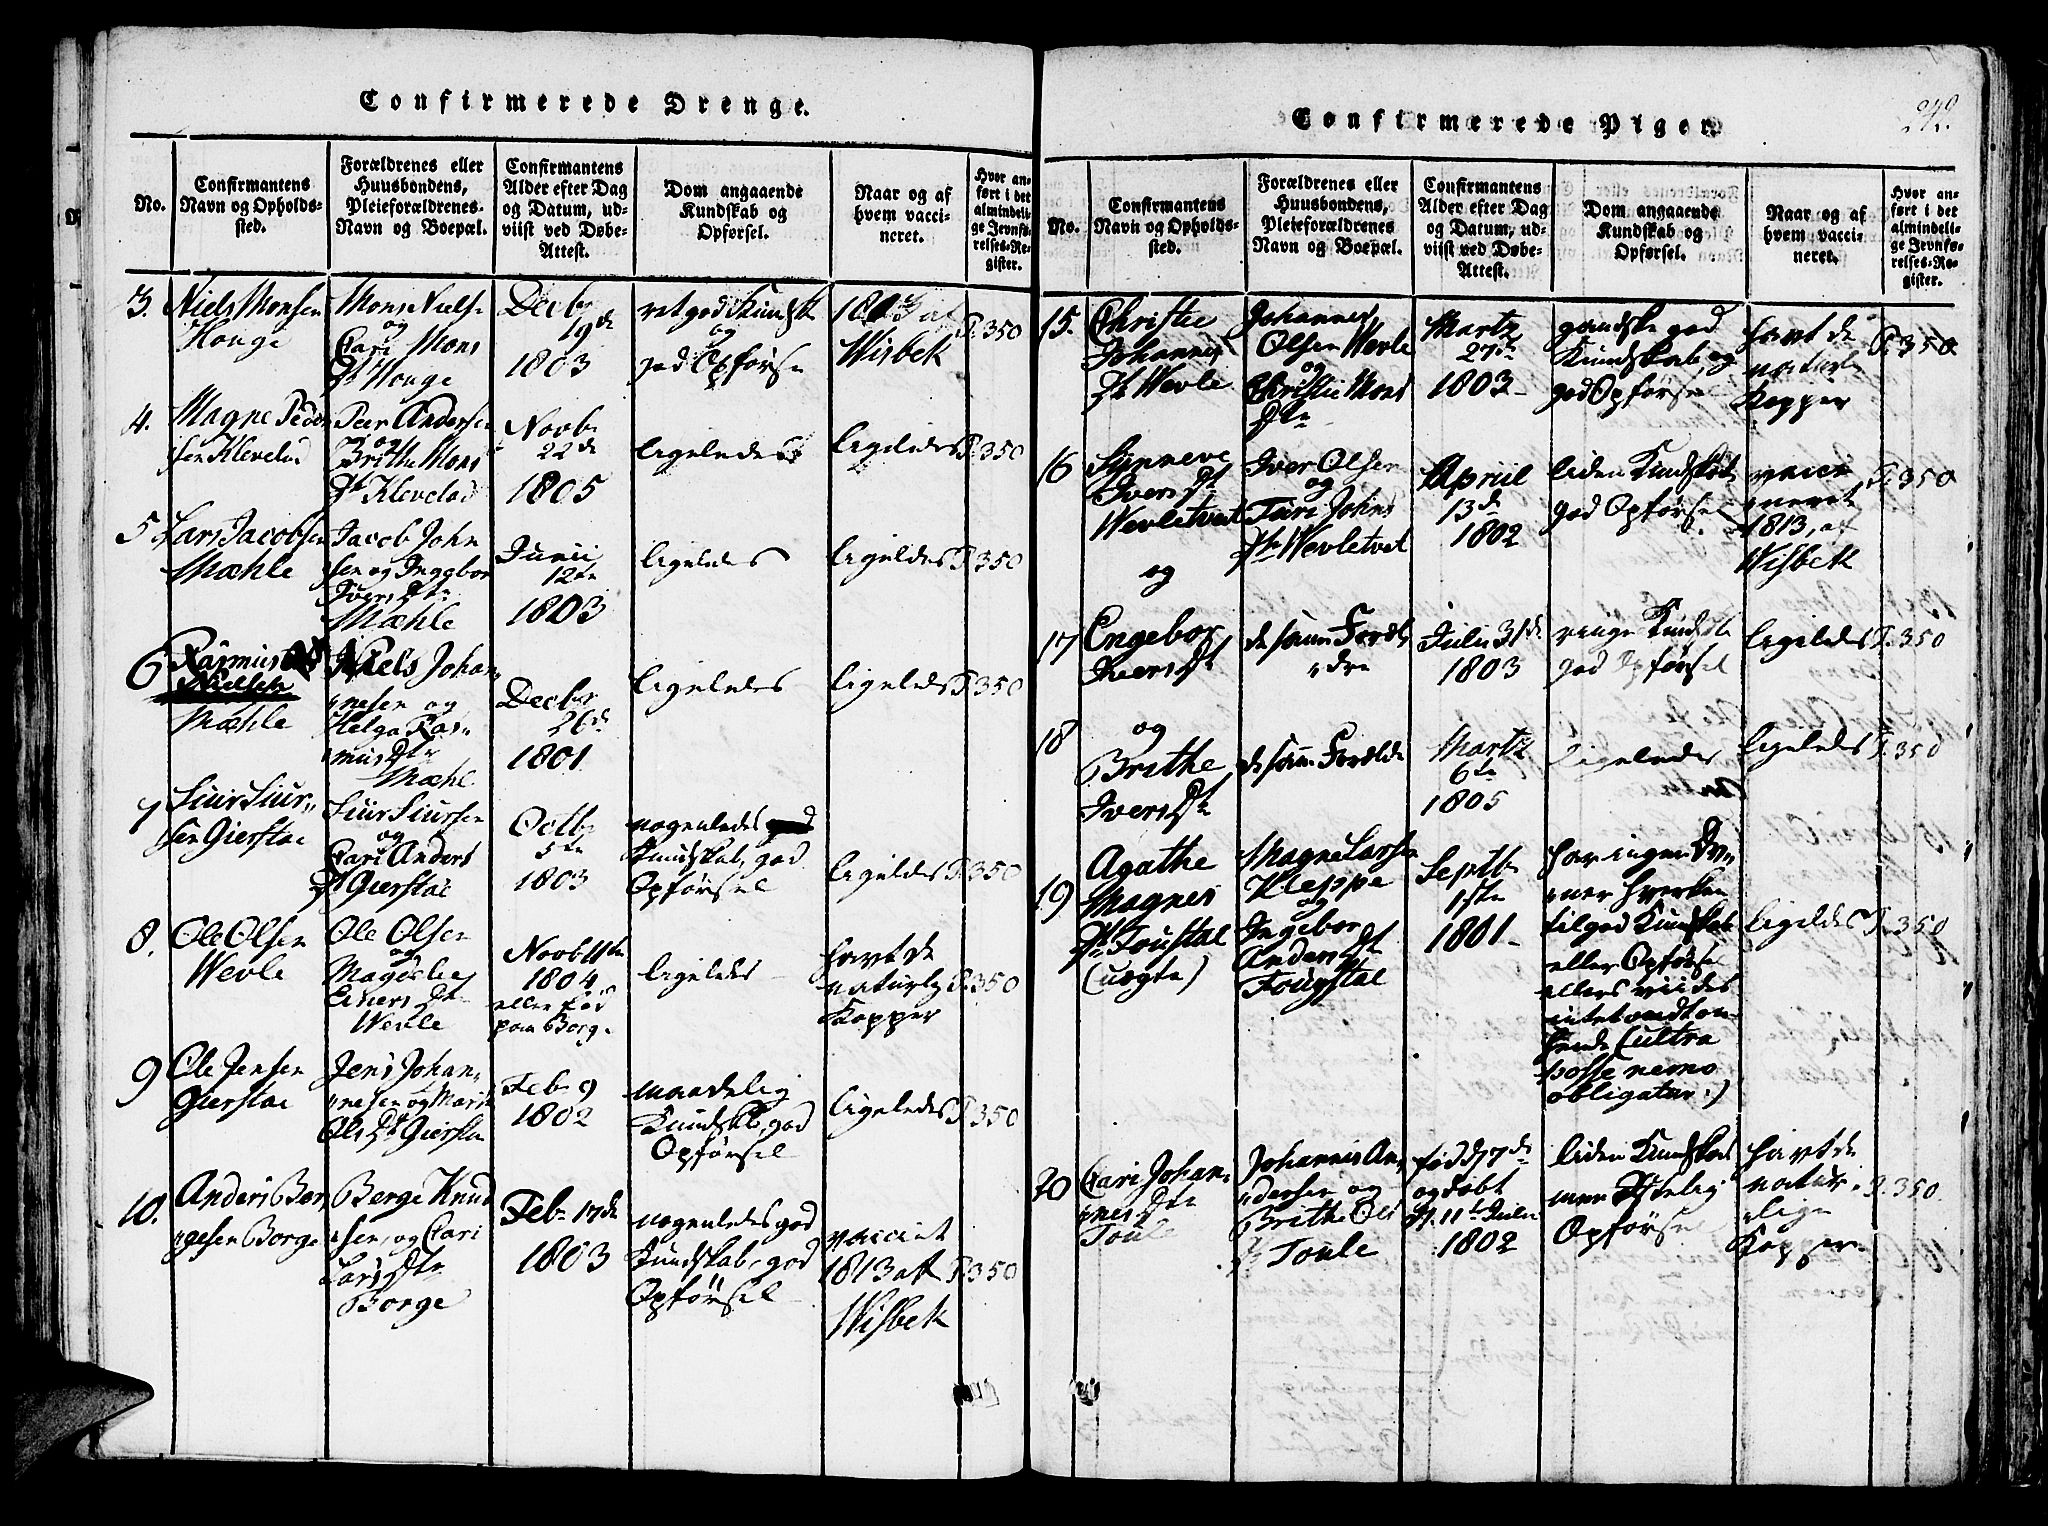 Confirmerede Drenge.
No.
Confirmantens
Navn og Opholds-
sted.
Forældrenes eller
Huusbondens,
Pleieforældrenes
Navn og Boepæl.
Confirmantens
Alder efter Dag
og Datum, ud-
viist ved Døbe-
Attest.
Dom angaaende
Kundskab og
Opførsel.
Naar og af
hvem vacci-
neret.
Hvor an-
ført i det
almindeli-
ge Jevnfø-
relses-Re-
gister.
3.
Niels Monsen
Houge
Mons Niels
og
Cari Mons
Dt Houge
Decbr
19de
1803
ret god Kundsk
og
god Opførse
af
Wisbek
P. 350
4.
Magne Peder
sen Klevelad
Peer Andersen
og
Brithe Mons
Dt Klevelad
Novb
22de
1805
ligeledes
ligeledes
P. 350
5
Lars Jacobsen
Mæhle
Jacob John
sen og Inggbor
Ivers Dtr
Mæhle
Junii
12te
1803
ligeledes
ligeledes
P. 350
6
Rasmus
Nielsen
Mæhle
Niels Johan
nesen og
Helga Ras-
mus Dtr
Mæhl
Decbr
26de
1801
ligeledes
ligeledes
P. 350
7
Siur Siur-
sen Gierstae
Siur Siursen
og
Cari Anders
Dt Gierstae
Octb
5te
1803
nogenledes
Kundskab, god
Opførsel
ligeledes
P. 350
8.
Ole Olsen
Wevle
Ole Olsen
og
Magdeli
Einers Dtr
Wevle
Novb 11te
1804
eller fød
paa Borge
ligeledes
havt de
naturlg
Kopper
P. 350
9
Ole Jensen
Gierstae
Jens Johan-
nesen og Marit
Ols Dt Gierstae
Feb 9
1802
maadelig
Kundsk, god
Opførsel
ligeledes
P. 350
10.
Anders Bør
gesen Borge
Børge Knud
sen, og Cari
Lars Dtr
Borge
Feb 17de
1803
nogenledes god
Kundskab, god
Opførsel
vaccint
1813 af
Wisbek
P. 350
Confirmerede Piger.
242.
No.
Confirmantens
Navn og Opholds-
sted.
Forældrenes eller
Huusbondens,
Pleieforældrenes
Navn og Boepæl.
Confirmantens
Alder efter Dag
og Datum, ud-
viist ved Døbe-
Attest.
Dom angaaende
Kundskab og
Opførsel.
Naar og af
hvem vacci-
neret.
Hvor an-
ført i det
almindeli-
ge Jevnfø-
relses-Re-
gister.
15.
Christie
Johannis
Dt Wevle
Johannes
Olsen Wevle
og
Christie Mons
Dtr
Martz
27de
1803
gandske god
Kundskab, og
god Opførsel
havt de
naturl
Kopper
P. 350
16
Synneve
Ivers Dt
Wevletvet
Iver Olsen
og
Turi Johns
Dtr Wevletvet
Apriil
13de
1802
liden Kundskab
god Opførsel
vacci
neret
1813, af
Wisbek
P. 350
og
17
Engebor
Ivers Dt
de samm Foræl-
dre
Julii 31de
1803
ringe Kundsk
god Opførsel
ligeledes
P. 350
og
18
Brithe
Ivers Dtr
de samm Foræld
Martz
6te
1805
ligeledes
ligeledes
P. 350
19
Agathe
Magnes
Dt Toustal
(uægte)
Magne Larsen
Kleppe
og
Ingebor
Anders Dt
Septb
1ste
1801
har ingen Ev-
ner hverken
til god Kundskab
eller Opførsel
ellers viides
intet ondt om
hende (ultra
posse nemo
obligatur.)
ligeledes
P. 350
20
Cari Johan-
nes Dtr
Toule
Johannis An-
dersen og
Brithe Ols
Dt Toule
fød d 7de
og døbt
d. 11te Julii
1802
liden Kundskab
men
Opførsel
havt de
natur
lige
Kopper
P. 350